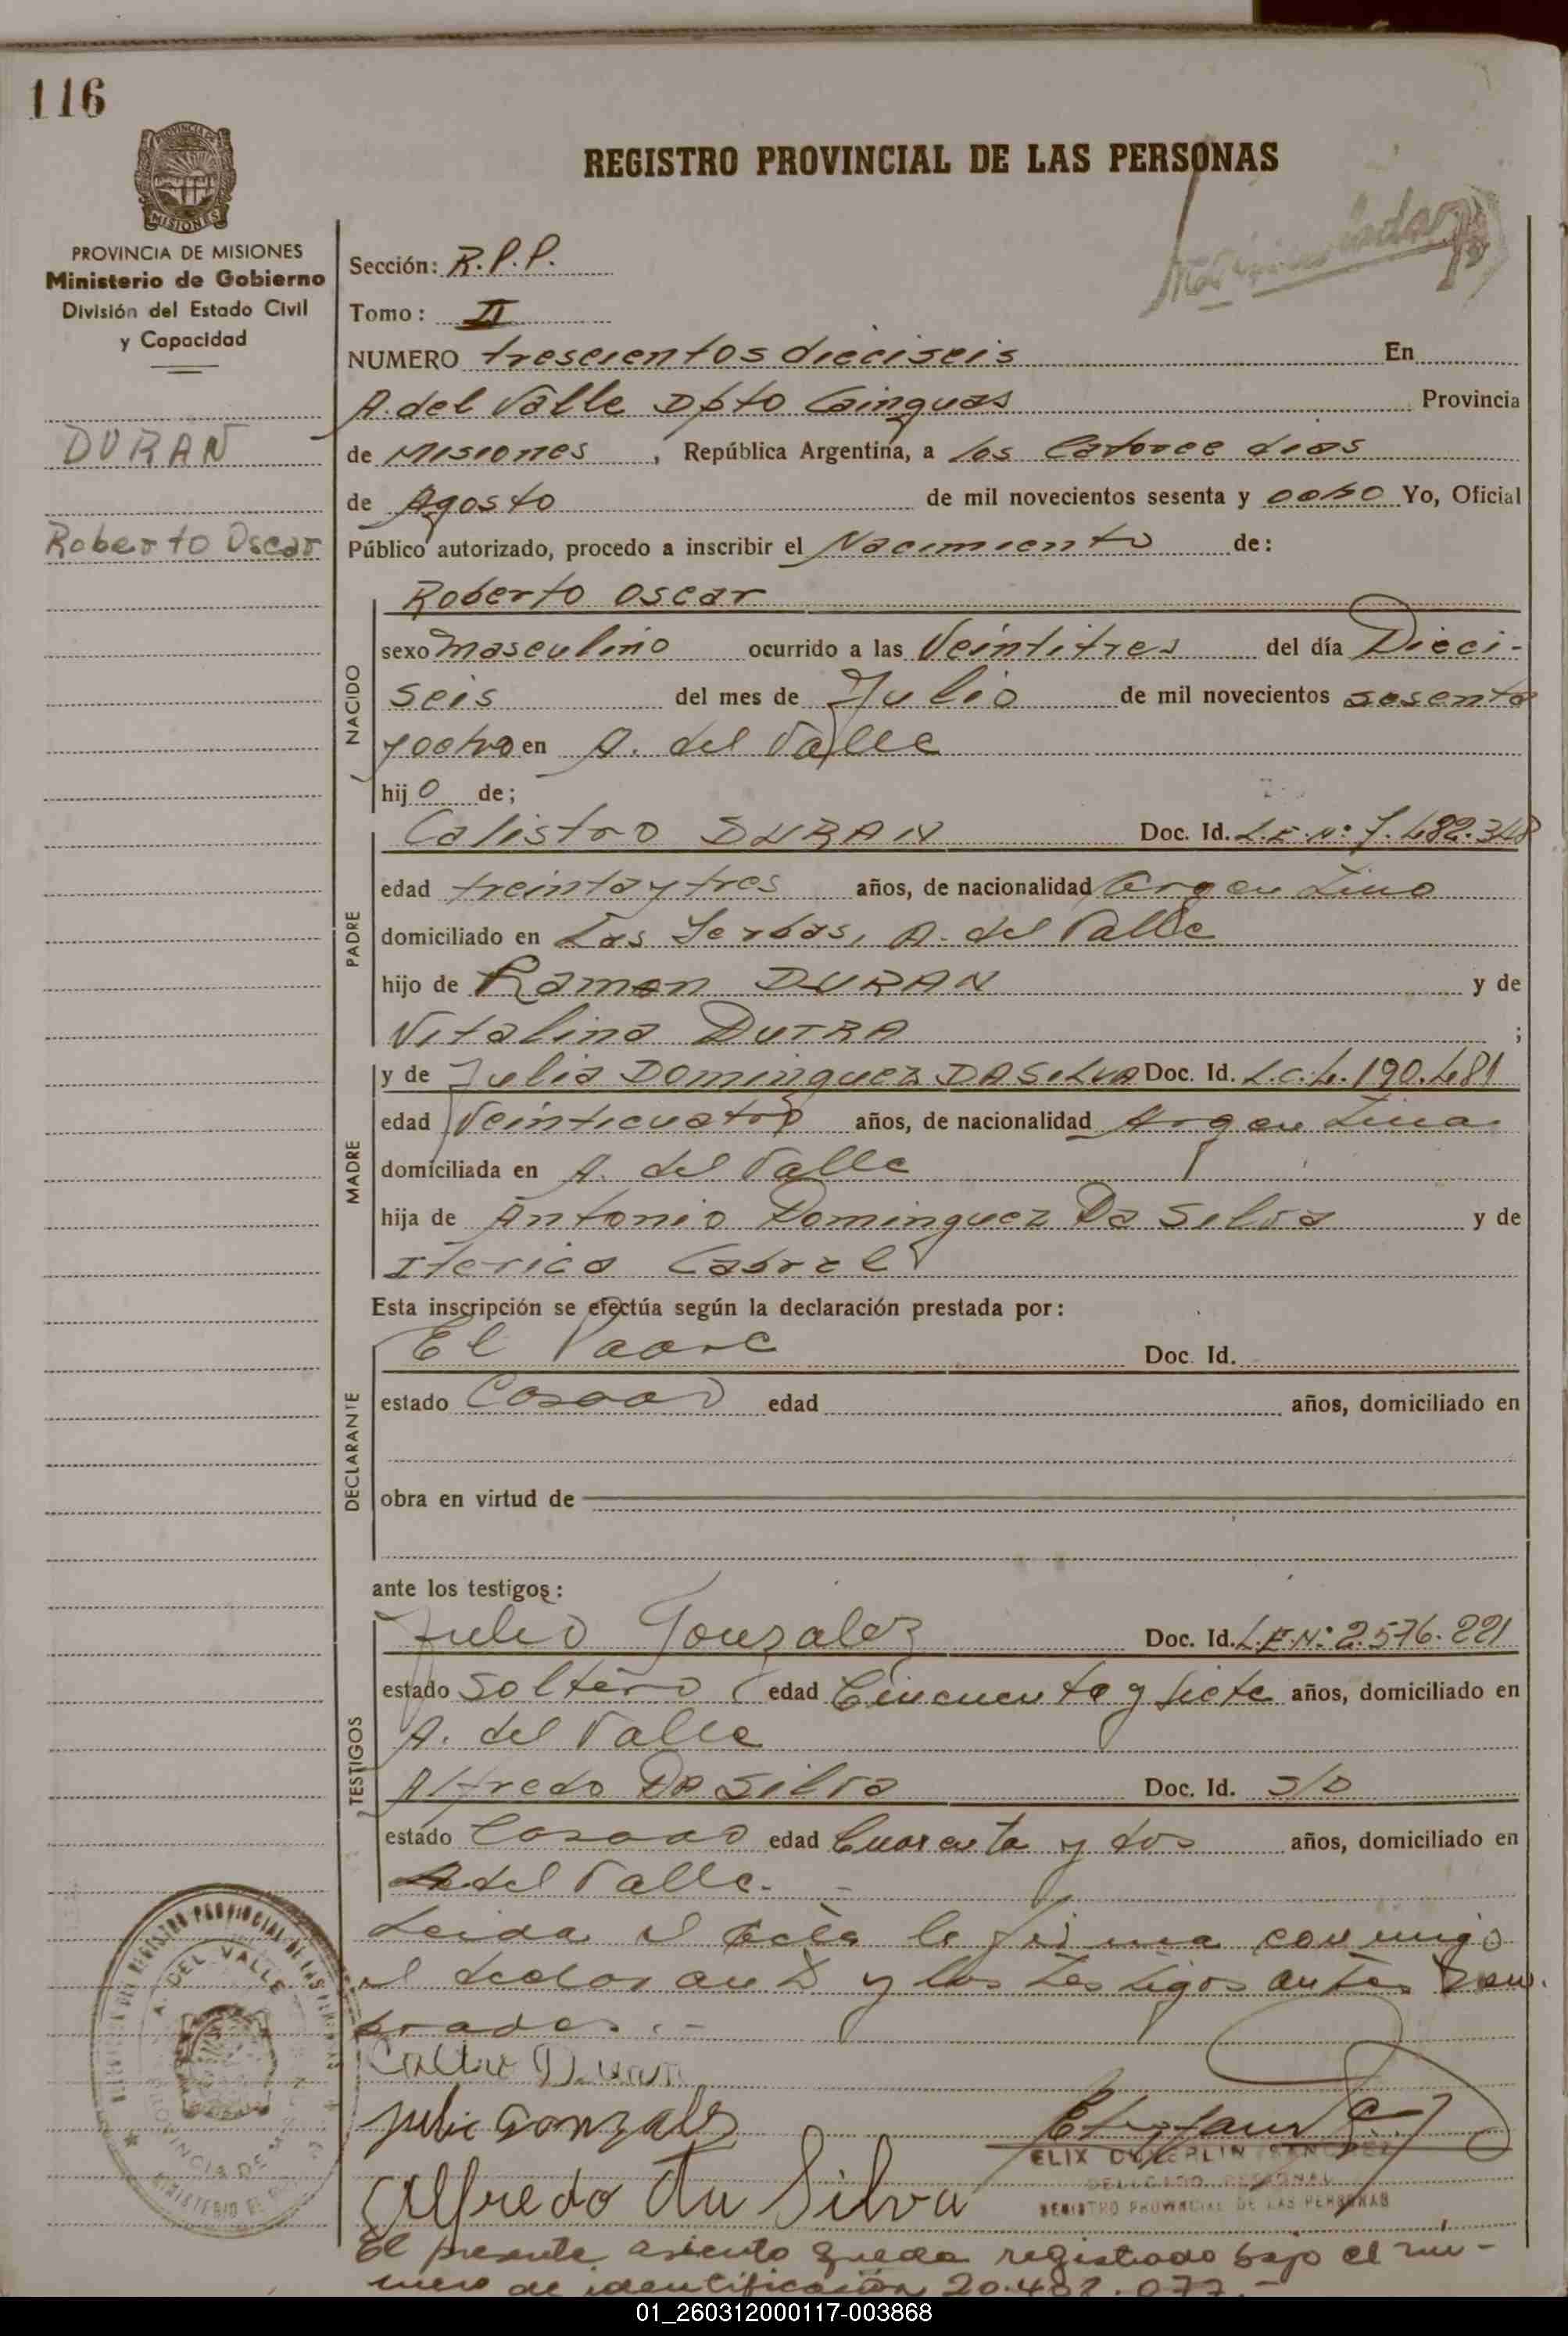 116
REGISTRO PROVINCIAL DE LAS PERSONAS
MISIONES
PROVINCIA DE MISIONES
Ministerio de Gobierno
División del Estado Civil
y Capacidad
DURAN
Roberto Oscar
Sección: R.P.P.
Tomo: II
NUMERO trescientos dieciseis En
A. del Valle Dpto Cainguas Provincia
de Misiones, República Argentina, a los Catorce dias
de Agosto de mil novecientos sesenta y ocho Yo, Oficial
Público autorizado, procedo a inscribir el Nacimiento de:
NACIDO
Roberto Oscar
sexo masculino ocurrido a las Veintitres del día Dieci-
seis del mes de Julio de mil novecientos sesenta
y ocho en A. del Valle
hijo de;
PADRE
Calistro DURAN Doc. Id. L.E.Nº 7.482.348
edad treinta y tres años, de nacionalidad Argentino
domiciliado en Las Yerbas, A. del Valle
hijo de Ramon DURAN y de
Vitalina DUTRA ;
MADRE
y de Julia DOMINGUEZ DA SILVA Doc. Id. L.C.4.190.481
edad Veinticuatro años, de nacionalidad Argentina
domiciliada en A. del Valle
hija de Antonio Dominguez Da Silva y de
Iterica Cabral
Esta inscripción se efectúa según la declaración prestada por:
DECLARANTE
El Padre Doc. Id.
estado Casado edad años, domiciliado en
obra en virtud de
ante los testigos:
TESTIGOS
Julio Gonzalez Doc. Id. L.E.Nº 2.576.221
estado soltero edad Cincuenta y siete años, domiciliado en
A. del Valle
Alfredo Da Silva Doc. Id. S/D
estado Casado edad Cuarenta y dos años, domiciliado en
A. del Valle.-
Leida el acta la firma conmigo
el declarante y los testigos antes nom-
brados.-
Duran
Julio Gonzalez
Alfredo da Silva
A. DEL VALLE
ELIX SANCHEZ
DELEGADO
REGISTRO PROVINCIAL DE LAS PERSONAS
El presente asiento queda registrado bajo el nu-
mero de identificación 20.482.077.-
01_260312000117-003868